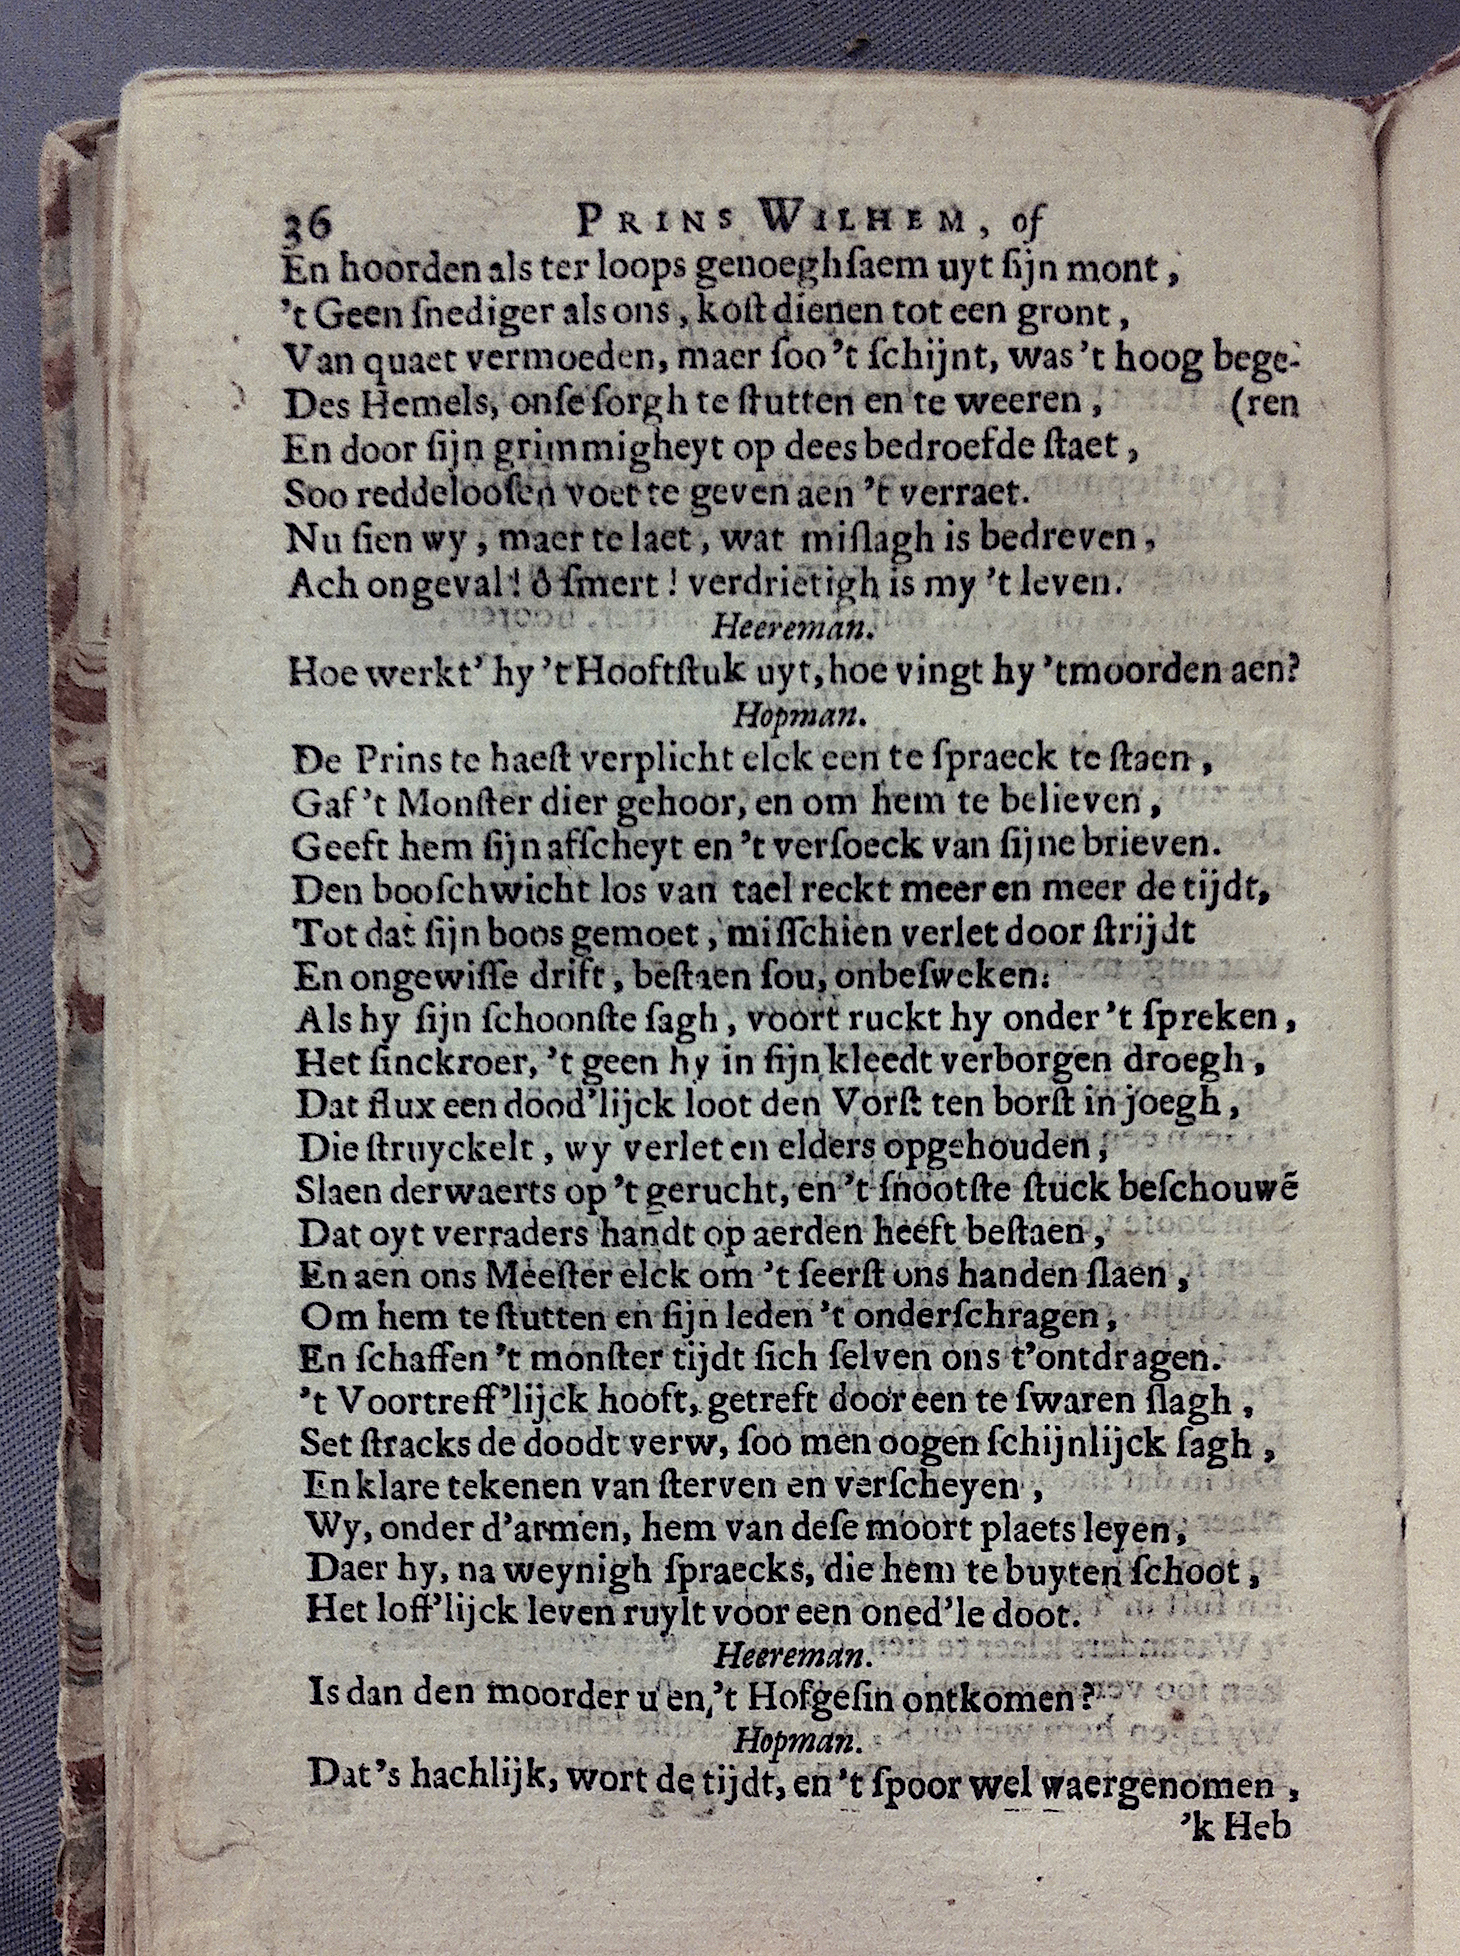 36 PRINS WILHEM, of
En hoorden als ter loops genoeghſaem uyt ſijn mont,
't Geen ſnediger als ons, koſt dienen tot een gront,
Van quaet vermoeden, maer ſoo 't ſchijnt, was 't hoog bege-
Des Hemels, onſe ſorgh te ſtutten en te weeren, (ren
En door ſijn grimmigheyt op dees bedroefde ſtaet,
Soo reddelooſen voet te geven aen 't verraet.
Nu ſien wy, maer te laet, wat miſlagh is bedreven,
Ach ongeval! ô ſmert! verdrietigh is my 't leven.
Heereman.
Hoe werkt' hy 't Hooftſtuk uyt, hoe vingt hy 'tmoorden aen?
Hopman.
De Prins te haeſt verplicht elck een te ſpraeck te ſtaen,
Gaf 't Monſter dier gehoor, en om hem te believen,
Geeft hem ſijn afſcheyt en 't verſoeck van ſijne brieven.
Den booſchwicht los van tael reckt meer en meer de tijdt,
Tot dat ſijn boos gemoet, miſſchien verlet door ſtrijdt
En ongewiſſe drift, beſtaen ſou, onbeſweken:
Als hy ſijn ſchoonſte ſagh, voort ruckt hy onder 't ſpreken,
Het ſinckroer, 't geen hy in ſijn kleedt verborgen droegh,
Dat flux een dood'lijck loot den Vorſt ten borſt in joegh,
Die ſtruyckelt, wy verlet en elders opgehouden,
Slaen derwaerts op 't gerucht, en 't ſnootſte ſtuck beſchouwẽ
Dat oyt verraders handt op aerden heeft beſtaen,
En aen ons Meeſter elck om 't ſeerſt ons handen ſlaen,
Om hem te ſtutten en ſijn leden 't onderſchragen,
En ſchaffen 't monſter tijdt ſich ſelven ons t'ontdragen.
't Voortreff'lijck hooft, getreft door een te ſwaren ſlagh,
Set ſtracks de doodt verw, ſoo men oogen ſchijnlijck ſagh,
En klare tekenen van ſterven en verſcheyen,
Wy, onder d'armen, hem van deſe moort plaets leyen,
Daer hy, na weynigh ſpraecks, die hem te buyten ſchoot,
Het loff'lijck leven ruylt voor een oned'le doot.
Heereman.
Is dan den moorder u en, 't Hofgeſin ontkomen?
Hopman.
Dat's hachlijk, wort de tijdt, en 't ſpoor wel waergenomen,
'k Heb